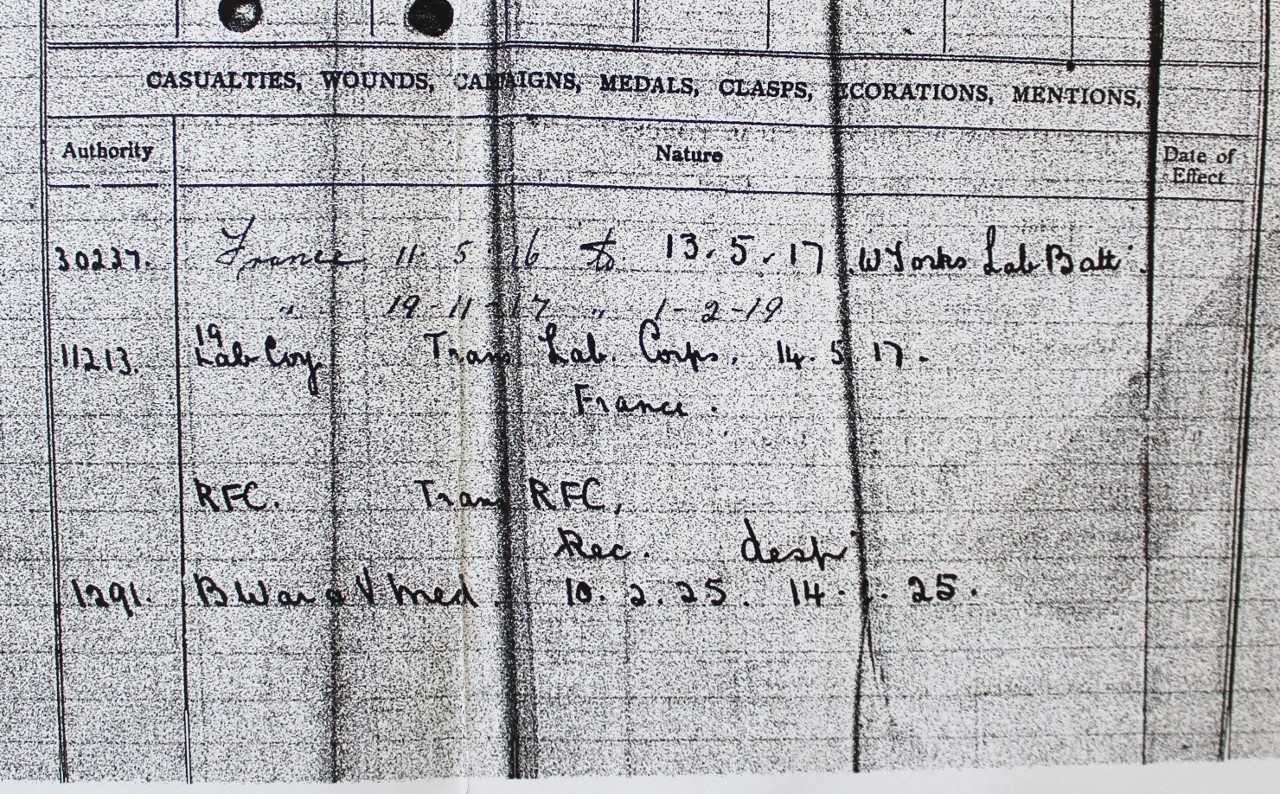 CASUALTIES, WOUNDS, CAMPAIGNS, MEDALS, CLASPS, DECORATIONS, MENTIONS,
Authority Nature Date of Effect
30237. France 11. 5 16 to 13.5.17 W Yorks Lab Batt.
" 19-11-17 " 1-2-19
11213. 19 Lab Coy Trans Lab. Corps. 14.5 17.
France.
RFC. Trans RFC,
Rec. desp
1291. B War & V Med. 10.2.25. 14. . 25.